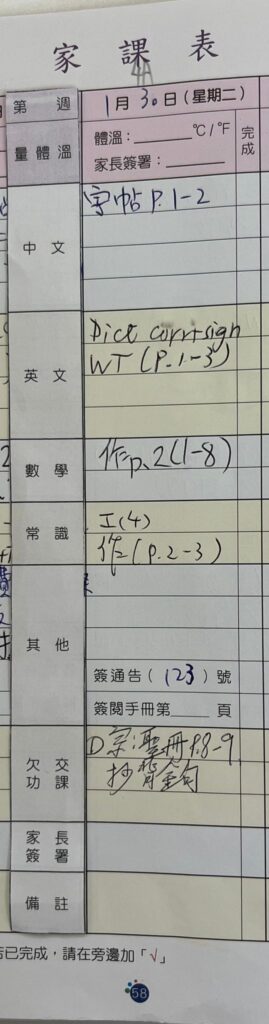 家課表
4A
第 週
1月30日(星期二)
完成
量體溫
體溫:______℃/℉
家長簽署:______
中文
字帖 P.1-2
英文
Dict corr+sign
WT (P.1-3)
數學
作p.2(1-8)
常識
I(4)
作(P.2-3)
其他
簽通告(123)號
簽閱手冊第____頁
欠交功課
D 宗:聖冊P.8-9
抄背金句
家長簽署
備註
若已完成,請在旁邊加「√」
58